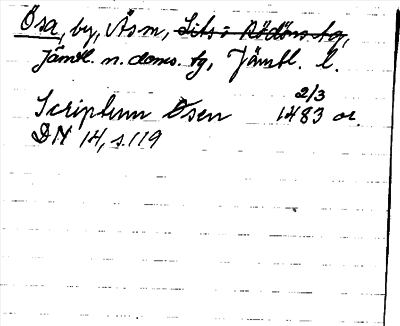 Ösa, by, Ås sn, Lits o Rödöns tg,
Jämtl. n. doms. tg, Jämtl. l.
2/3
Scriptum Øsen 1483 or.
DN 14, s. 119